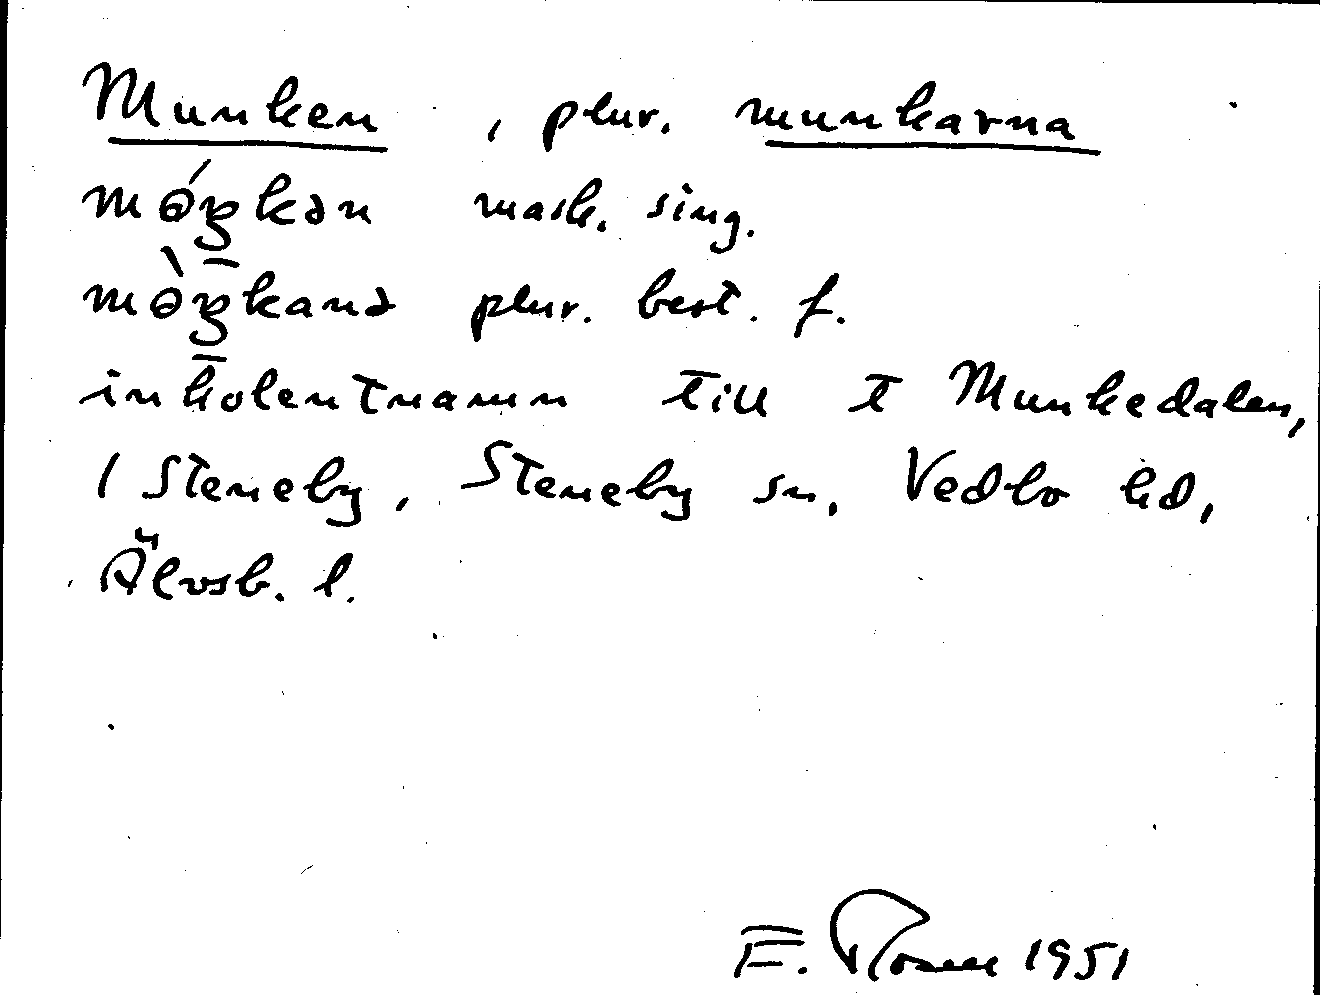 Munken, plur. munkarna
mɵ́ŋkən mask. sing.
mɵ̀ŋkanə plur. best. f.
inkolentnamn till t Munkedalen,
1 Steneby, Steneby sn, Vedbo hd,
Älvsb. l.
E. Rosell 1951